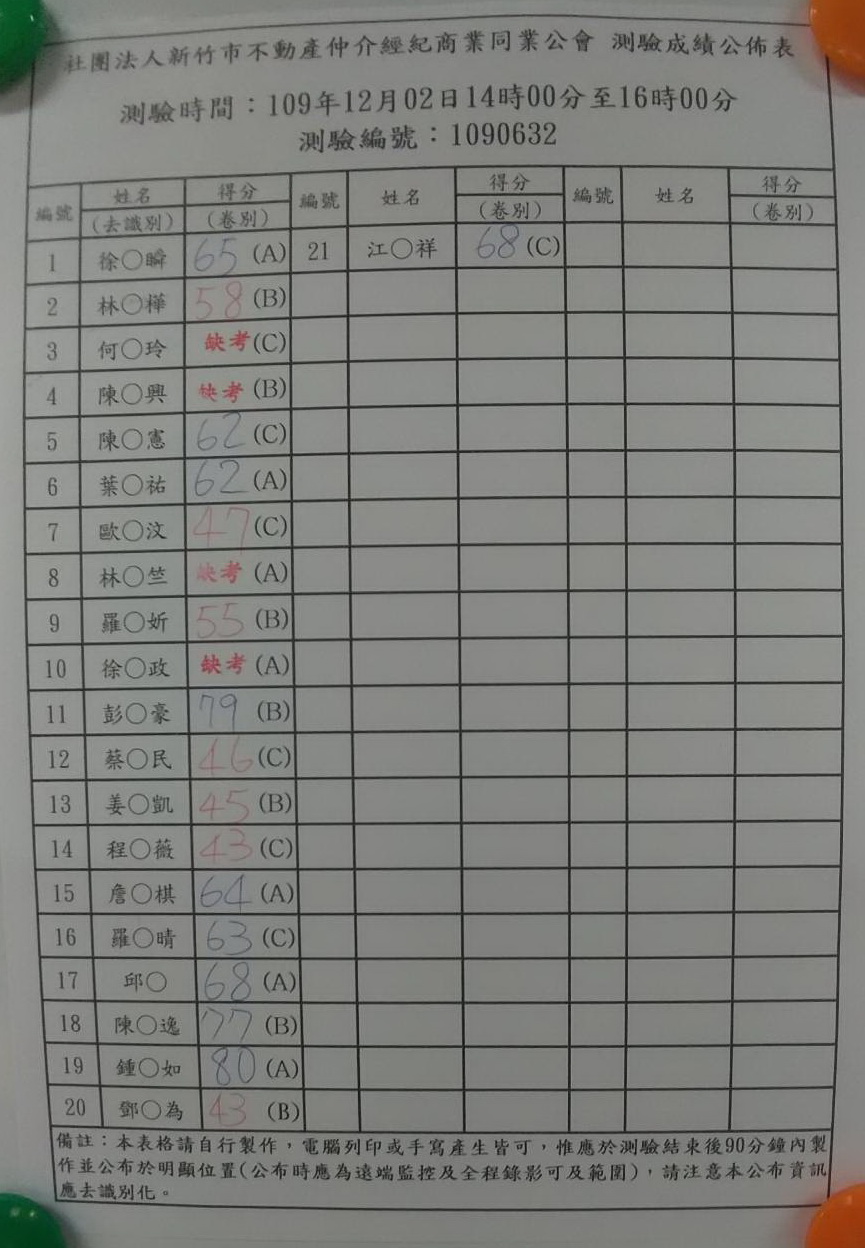 社團法人新竹市不動產仲介經紀商業同業公會 測驗成績公佈表
測驗時間：109年12月02日14時00分至16時00分
測驗編號：1090632
編號 姓名 得分 編號 姓名 得分 編號 姓名 得分
(去識別) (卷別) (卷別) (卷別)
1 徐○瞬 65 (A) 21 江○祥 68 (C)
2 林○樺 58 (B)
3 何○玲 缺考 (C)
4 陳○興 缺考 (B)
5 陳○憲 62 (C)
6 葉○祐 62 (A)
7 歐○汶 47 (C)
8 林○竺 缺考 (A)
9 羅○妡 55 (B)
10 徐○政 缺考 (A)
11 彭○豪 79 (B)
12 蔡○民 46 (C)
13 姜○凱 45 (B)
14 程○薇 43 (C)
15 詹○棋 64 (A)
16 羅○晴 63 (C)
17 邱○ 68 (A)
18 陳○逸 77 (B)
19 鍾○如 80 (A)
20 鄧○為 43 (B)
備註：本表格請自行製作，電腦列印或手寫產生皆可，惟應於測驗結束後90分鐘內製
作並公布於明顯位置(公布時應為遠端監控及全程錄影可及範圍)，請注意本公布資訊
應去識別化。